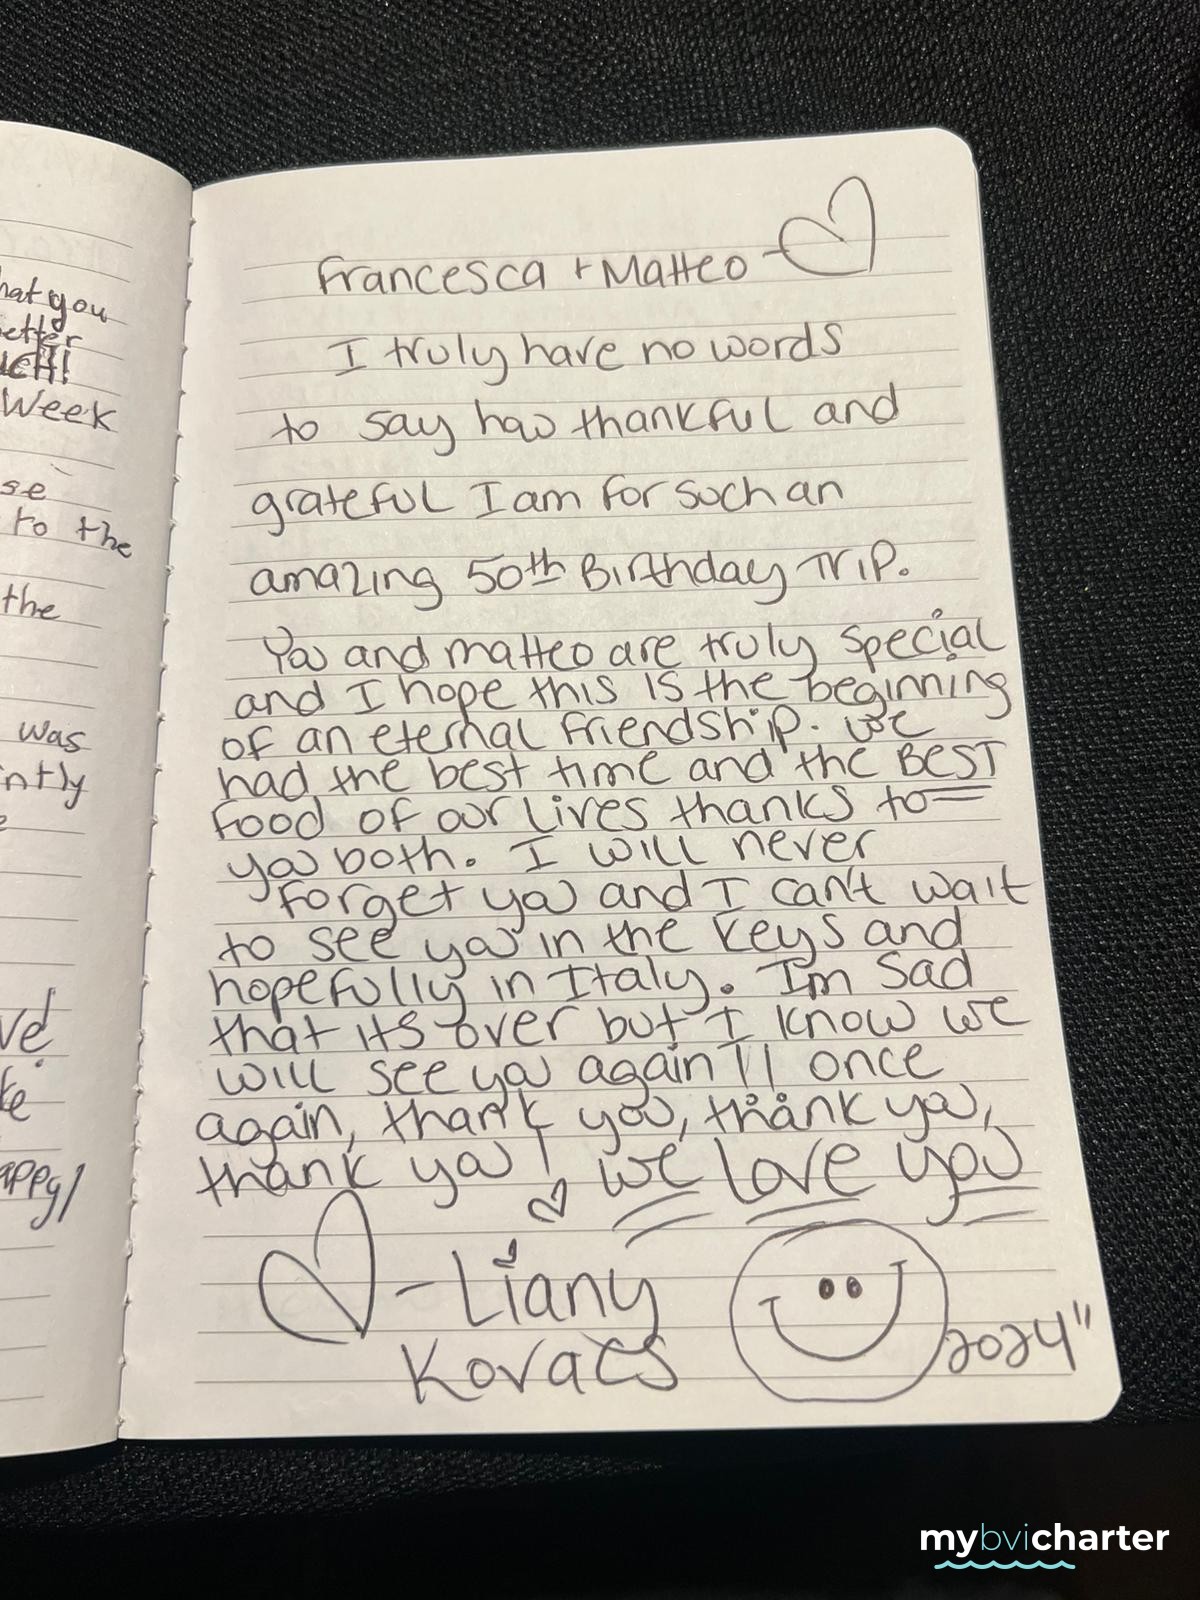 hat you
etter
UCH!
week
se
to the
the
was
ntly
ve
ke
appy!
Francesca + Matteo -
I truly have no words
to say how thankful and
grateful I am for such an
amazing 50th Birthday Trip.
You and Matteo are truly special
and I hope this is the beginning
of an eternal friendship. We
had the best time and the BEST
food of our lives thanks to
you both. I will never
forget you and I can't wait
to see you in the Keys and
hopefully in Italy. Im sad
that its over but I know we
will see you again!! once
again, thank you, thank you,
thank you! We love you
- Liany
Kovacs
2024"
mybvicharter